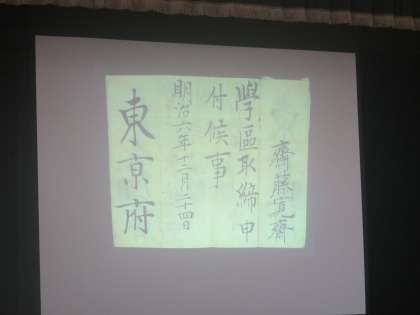 齋藤寛齋
學區取締申
付候事
明治六年十二月二十四日
東京府